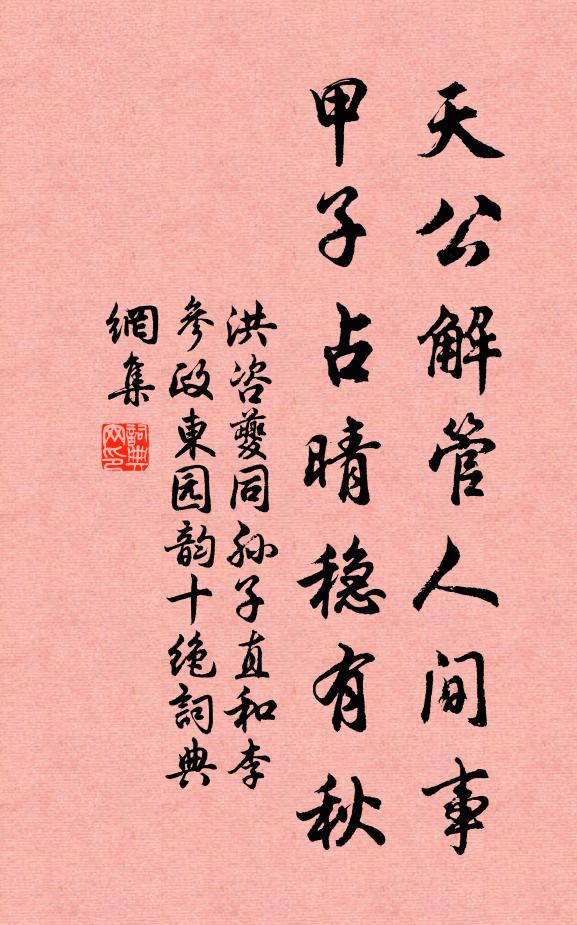 天公解管人间事
甲子占晴稳有秋
洪咨夔同孙子直和李
参政東园韵十绝詞典
網集
詞典
网印